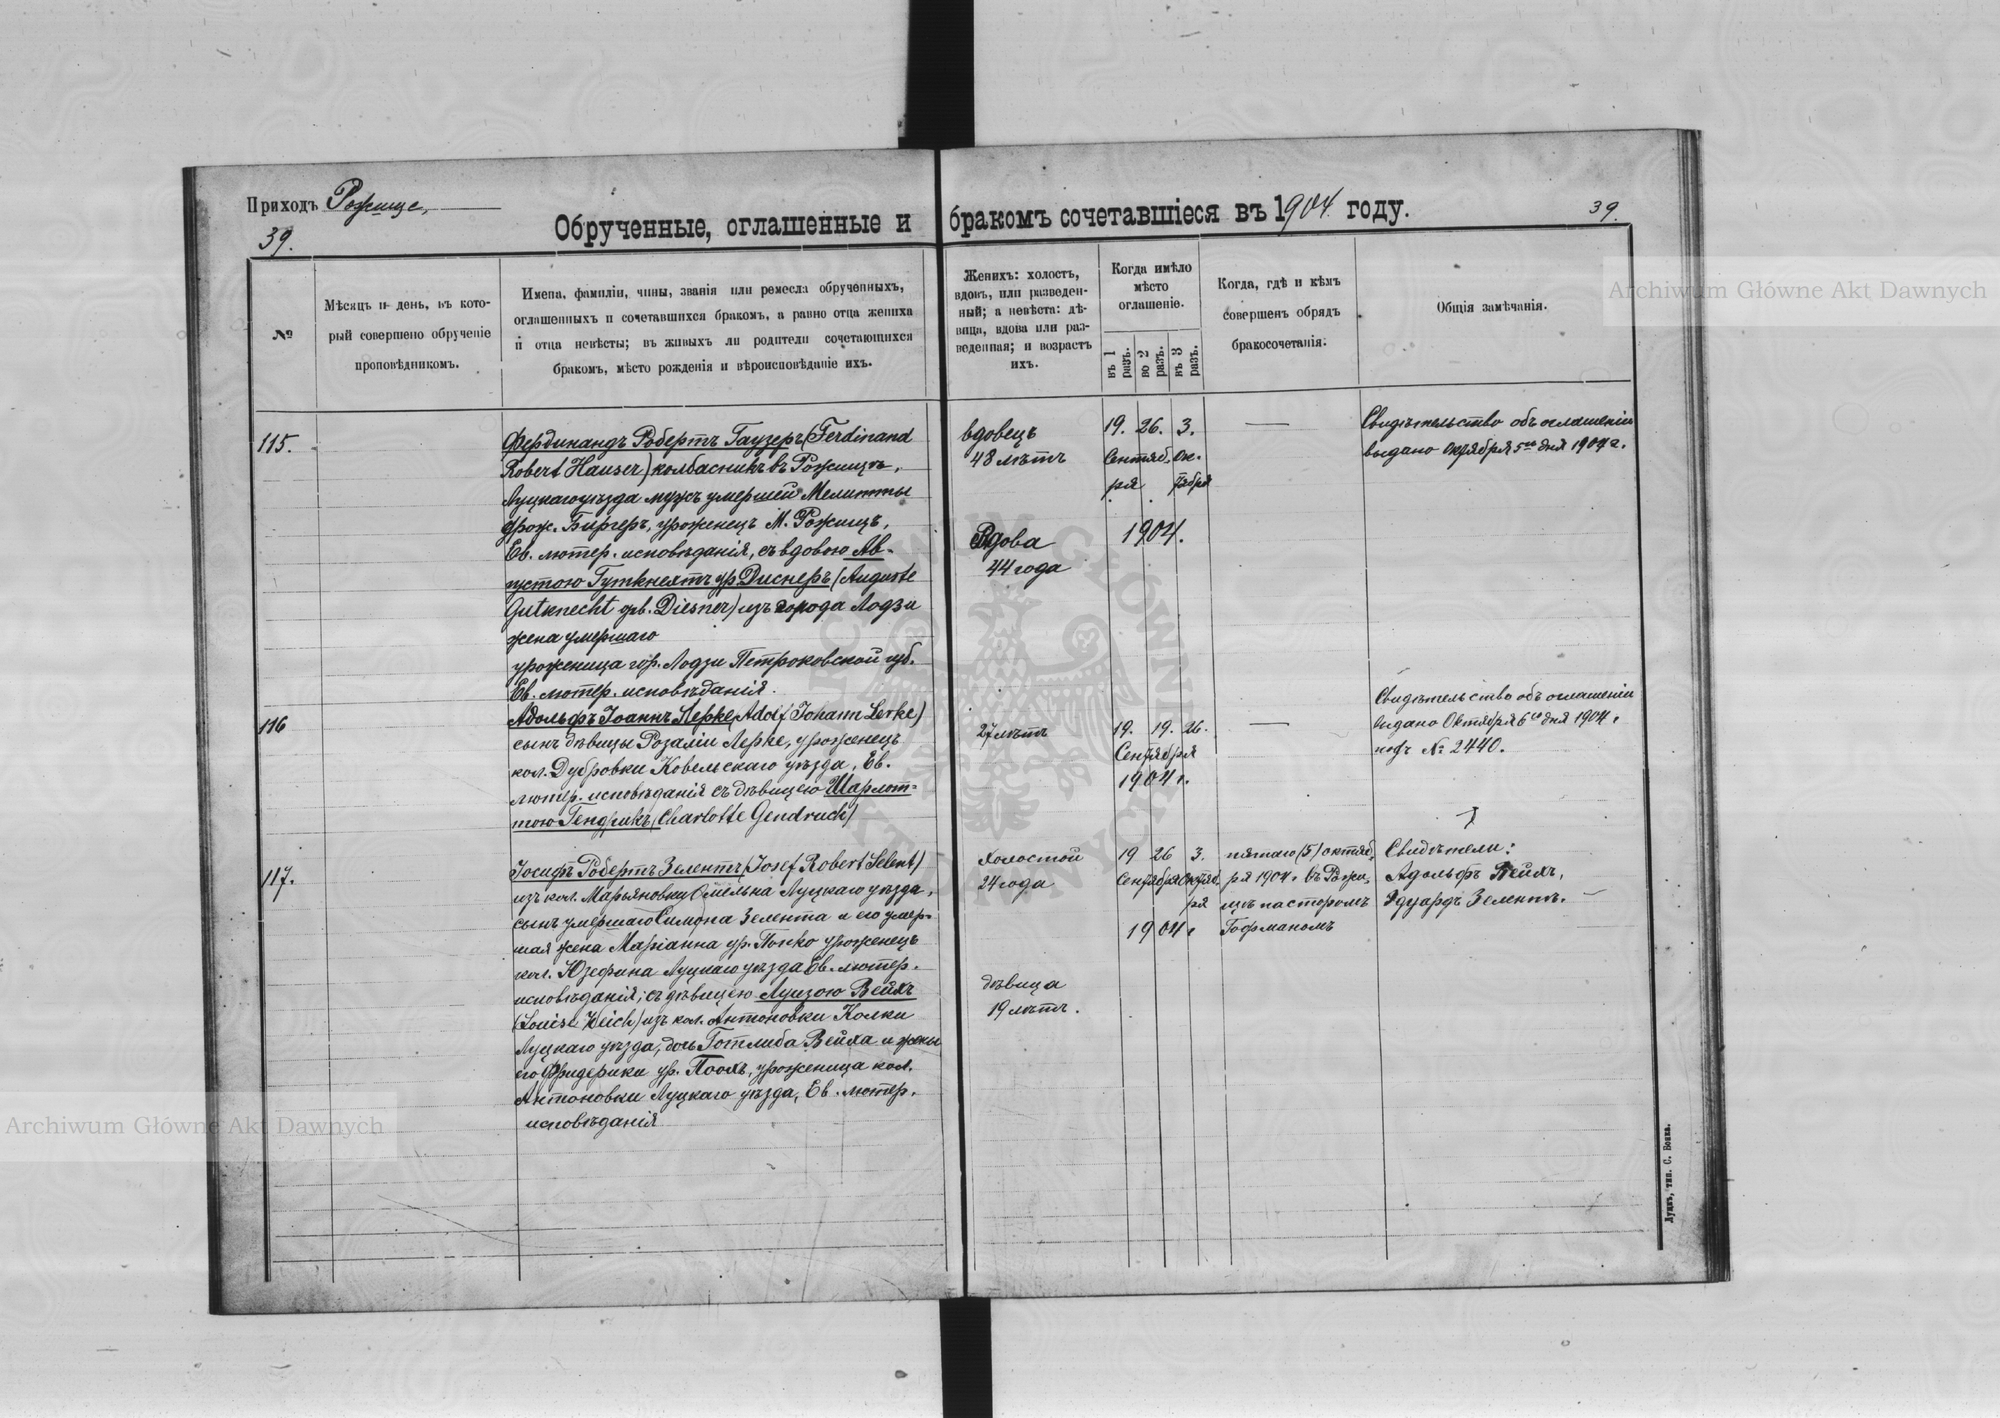 Приходъ Рожище,
39.
Обрученные, оглашенные и бракомъ сочетавшіеся въ 1904. году.
39.
№
Мѣсяцъ и день, въ кото-
рый совершено обрученіе
проповѣдникомъ.
Имена, фамиліи, чины, званія или ремесла обрученныхъ,
оглашенныхъ и сочетавшихся бракомъ, а равно отца жениха
и отца невѣсты; въ живыхъ ли родители сочетающихся
бракомъ, мѣсто рожденія и вѣроисповѣданіе ихъ.
Женихъ: холостъ,
вдовъ, или разведен-
ный; а невѣста: дѣ-
вица, вдова или раз-
веденная; и возрастъ
ихъ.
Когда имѣло
мѣсто
оглашеніе.
въ 1 разъ.
во 2 разъ.
въ 3 разъ.
Когда, гдѣ и кѣмъ
совершенъ обрядъ
бракосочетанія.
Общія замѣчанія.
115.
Фердинандъ Робертъ Гаузеръ (Ferdinand
Robert Hauser) колбасникъ въ Рожищѣ,
Луцкаго уѣзда мужъ умершей Мелитты
урож. Биргеръ, уроженецъ М. Рожищъ,
Ев. лютер. исповѣданія, съ вдовою Ав-
густою Гуткнехтъ ур. Диснеръ (Auguste
Gutknecht geb. Diesner) изъ города Лодзи
жена умершаго
уроженица гор. Лодзи Петроковской губ.
Ев. лютер. исповѣданія.
вдовецъ
48 лѣтъ
Вдова
44 года
19. 26. 3.
Сентяб. Ок-
ря тября
1904.
Свидѣтельство объ оглашеніи
выдано Октября 5го дня 1904 г.
116
Адольфъ Іоаннъ Лерке (Adolf Johann Lerke)
сынъ дѣвицы Розаліи Лерке, уроженецъ
кол. Дубровки Ковельскаго уѣзда, Ев.
лютер. исповѣданія съ дѣвицею Шарлот-
тою Гендрикъ (Charlotte Gendruch)
27 лѣтъ
19. 19. 26.
Сентября
1904 г.
Свидѣтельство объ оглашеніи
выдано Октября 6го дня 1904 г.
подъ № 2440.
117.
Іосифъ Робертъ Зелентъ (Josef Robert Selent)
изъ кол. Марьяновки Омельна Луцкаго уѣзда,
сынъ умершаго Симона Зелента и его умер-
шая жена Маріанна ур. Попко уроженецъ
кол. Юзефина Луцкаго уѣзда Ев. лютер.
исповѣданія; съ дѣвицею Луизою Вейхъ
(Louise Weich) изъ кол. Антоновки Колки
Луцкаго уѣзда, дочь Готлиба Вейха и жены
его Фридерики ур. Поолъ, уроженица кол.
Антоновки Луцкаго уѣзда, Ев. лютер.
исповѣданія
Холостой
24 года
дѣвица
19 лѣтъ.
19 26 3.
Сентября Октяб
ря
1904 г
пятаго (5) октяб.
ря 1904 г въ Рожи-
щѣ пасторомъ
Гофманомъ
Свидѣтели:
Адольфъ Вейхъ,
Эдуардъ Зелентъ.
Луцкъ, тип. С. Бонка.
Archiwum Główne Akt Dawnych
Archiwum Główne Akt Dawnych